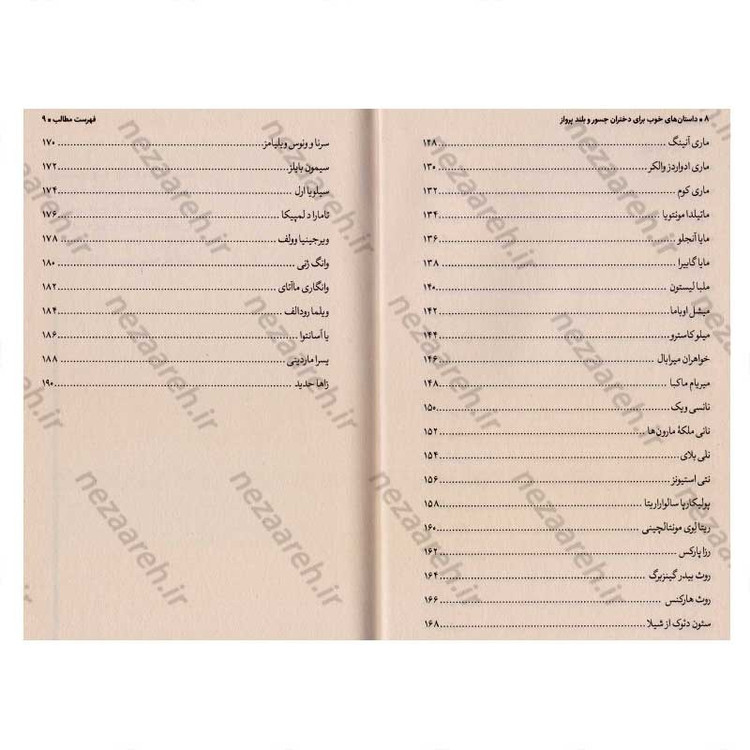 ۸ • داستان‌های خوب برای دختران جسور و بلند پرواز
ماری آنینگ ۱۴۸
ماری ادواردز والکر ۱۳۰
ماری کوم ۱۳۲
ماتیلدا مونتویا ۱۳۴
مایا آنجلو ۱۳۶
مایا گابیرا ۱۳۸
ملبا لیستون ۱۴۰
میشل اوباما ۱۴۲
میلو کاسترو ۱۴۴
خواهران میرابال ۱۴۶
میریام ماکبا ۱۴۸
نانسی ویک ۱۵۰
نانی ملکهٔ مارون‌ها ۱۵۲
نلی بلای ۱۵۴
نتی استیونز ۱۵۶
پولیکارپا سالواراریتا ۱۵۸
ریتا لوی مونتالچینی ۱۶۰
رزا پارکس ۱۶۲
روث بیدر گینزبرگ ۱۶۴
روث هارکنس ۱۶۶
سئون دئوک از شیلا ۱۶۸
فهرست مطالب • ۹
سرنا و ونوس ویلیامز ۱۷۰
سیمون بایلز ۱۷۲
سیلویا ارل ۱۷۴
تامارا د لمپیکا ۱۷۶
ویرجینیا وولف ۱۷۸
وانگ ژنی ۱۸۰
وانگاری ماآتای ۱۸۲
ویلما رودالف ۱۸۴
یا آسانتوا ۱۸۶
یسرا ماردینی ۱۸۸
زاها حدید ۱۹۰
nezaareh.ir